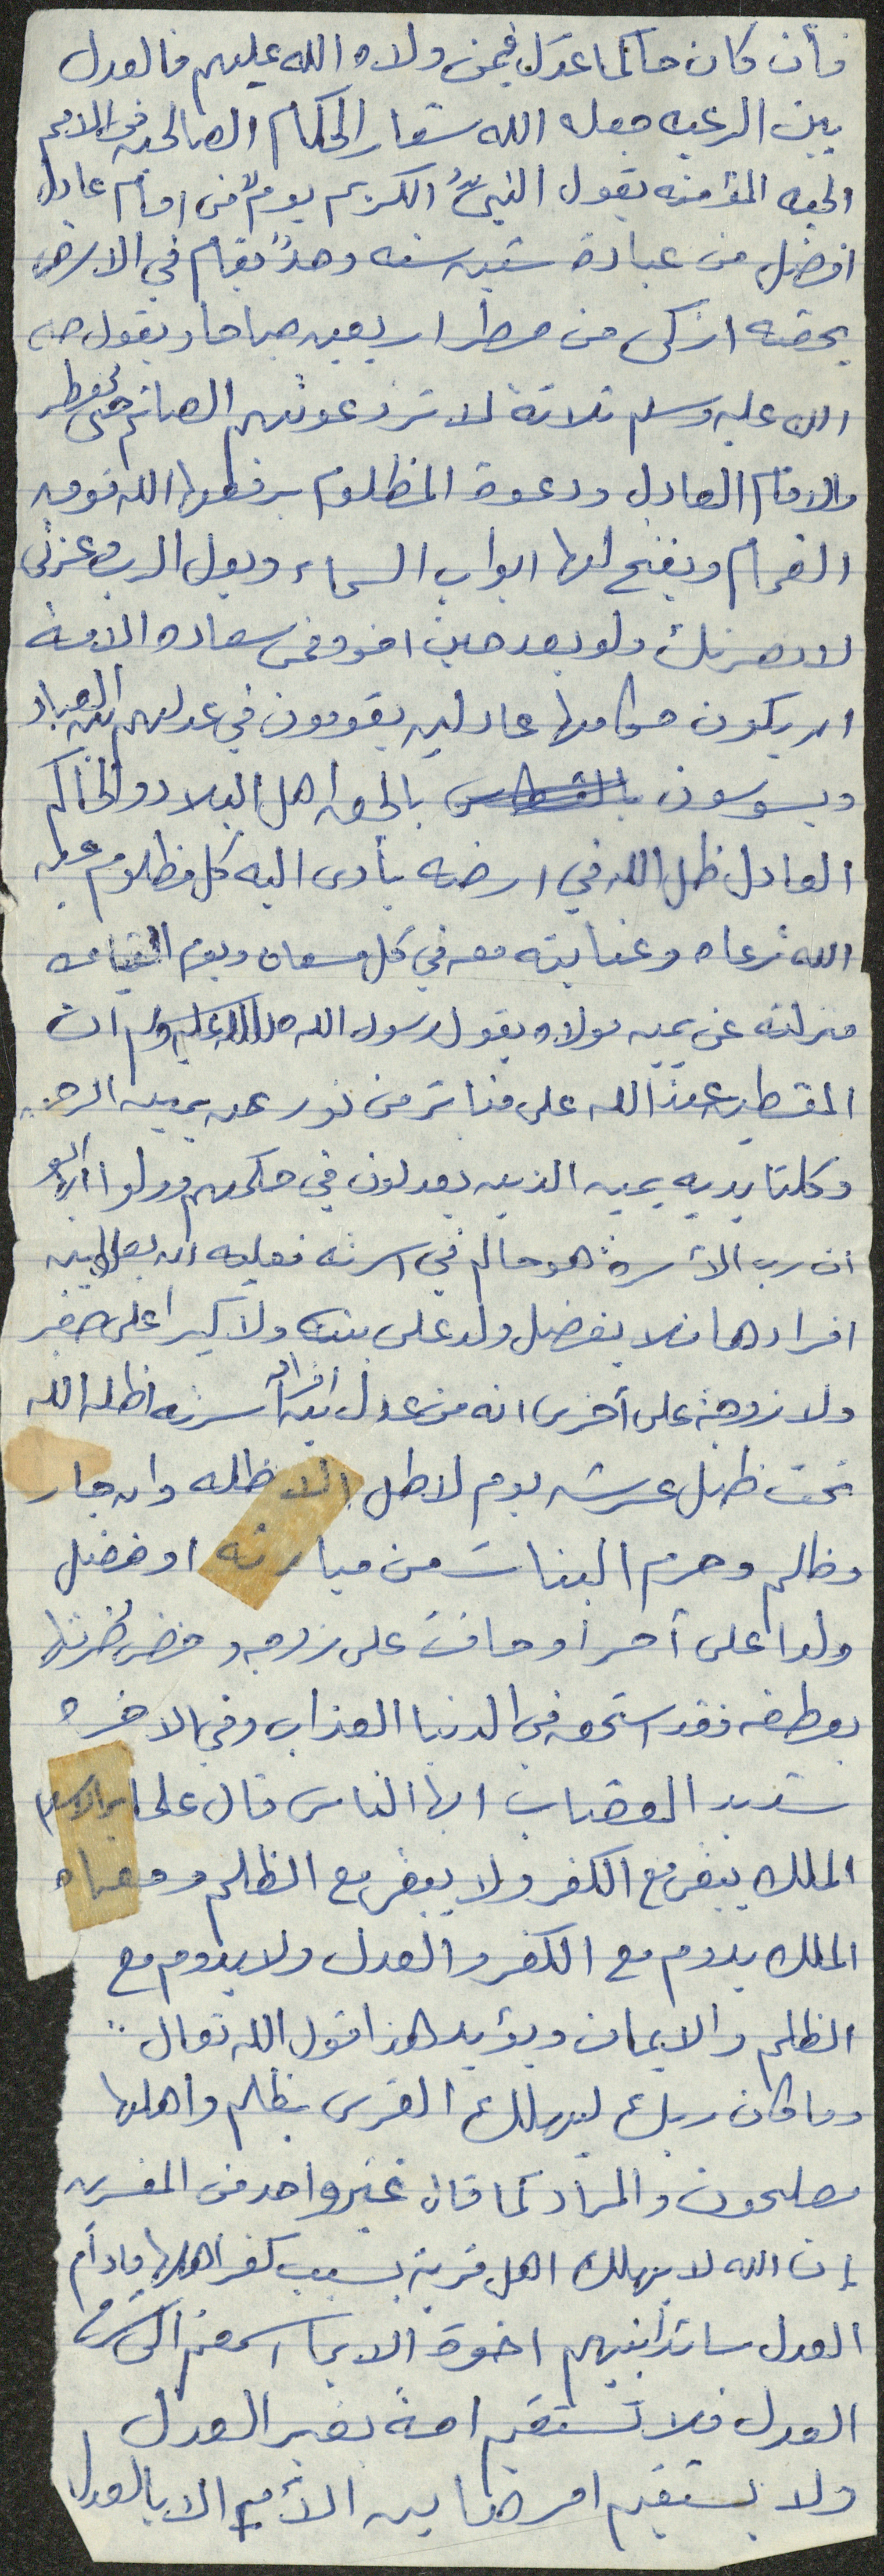 فأن كان حاكما عدل فيمن ولاه الله عليهم فالعدل
بين الرعيه جعله الله شعار الحكام الصالحين في الامم
الحيه المؤمنه يقول النبي الكريم يوم من امام عادل
افضل من عبادة ستين سنه وحد يقام في الارض
بحقه ازكى من مطر اربعين صباحا ويقول صلى
الله عليه وسلم ثلاثة لا ترد دعوتهم الصائم حتى يفطر
والامام العادل ودعوة المظلوم يرفعها الله فوق
الغمام ويفتح لها ابواب السماء ويقول الرب وعزتي
لانصرنك ولو بعد حين اخوة فمن سعاده الامة
ان يكون حكامها عادلين يقومون في عدلهم بين العباد
ويسوسون بالحق اهل البلاد والحاكم
العادل ظل الله في ارضه يأوى اليه كل مظلوم عين
الله ترعاه وعنايته معه في كل مسعاه ويوم القيامه
منزلته عن يمين مولاه يقول رسول الله صلى الله عليه وسلم ان
المقسطين عند الله على منابر من نور عن يمين الرحمن
وكلتا يديه يمين الذين يعدلون في حكمهم وما ولوا
ان رب الأسرة هو حاكم في اسرته فعليه ان يعدل بين
افرادها فلا يفضل ولد على بنت ولا كبيرا على صغير
ولا زوجة على أخرى انه من عدل بين افراد أسرته اظله الله
تحت ظل عرشه يوم لا ظل إلا ظله وان جار
وظلم وحرم البنات من ميراثه او فضل
ولدا على آخر أو حاف على زوجه وخص ضرتها
بعطفه فقد استحق في الدنيا العذاب وفي الاخره
شديد العقاب ايها الناس قال علماء الاسلام
الملك يبقى مع الكفر ولا يبقى مع الظلم ومعناه
الملك يدوم مع الكفر والعدل ولا يدوم مع
الظلم والايمان ويؤيد هذا قول الله تعالى ..
وما كان ربك ليهلك القرى بظلم واهلها
مصلحون والمراد كما قال غير واحد من المفسرين
إن الله لا يهلك اهل قرية بسبب كفر أهلها مادام
العدل سائدا بينهم اخوة الايمان
العدل فلا تستقيم امة بغير العدل
ولا يستقيم امر هنا بين الأمم إلا بالعدل